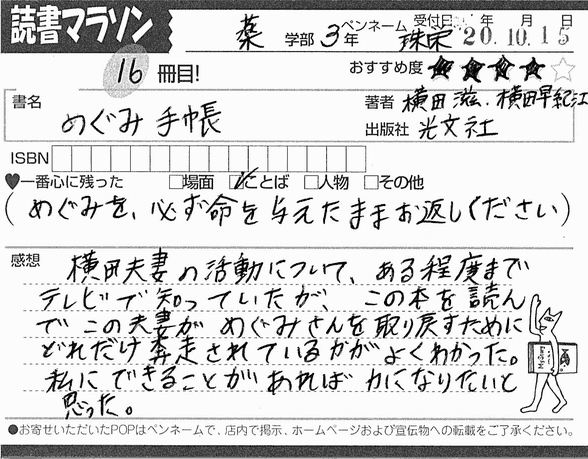 読書マラソン
薬 学部 3年 ペンネーム 珠栄 受付日 年 月 日
20.10.15
16 冊目!
おすすめ度 ★★★★☆
書名 めぐみ 手帳
著者 横田 滋. 横田早紀江
出版社 光文社
ISBN
♥一番心に残った □場面 ☑ことば □人物 □その他
( めぐみを、必ず命を与えたままお返しください)
感想
横田夫妻の活動について、ある程度まで
テレビで知っていたが、この本を読ん
でこの夫妻がめぐみさんを取り戻すために
どれだけ奔走されているかがよくわかった。
私にできることがあれば力になりたいと
思った。
●お寄せいただいたPOPはペンネームで、店内で掲示、ホームページおよび宣伝物への転載をご了承ください。